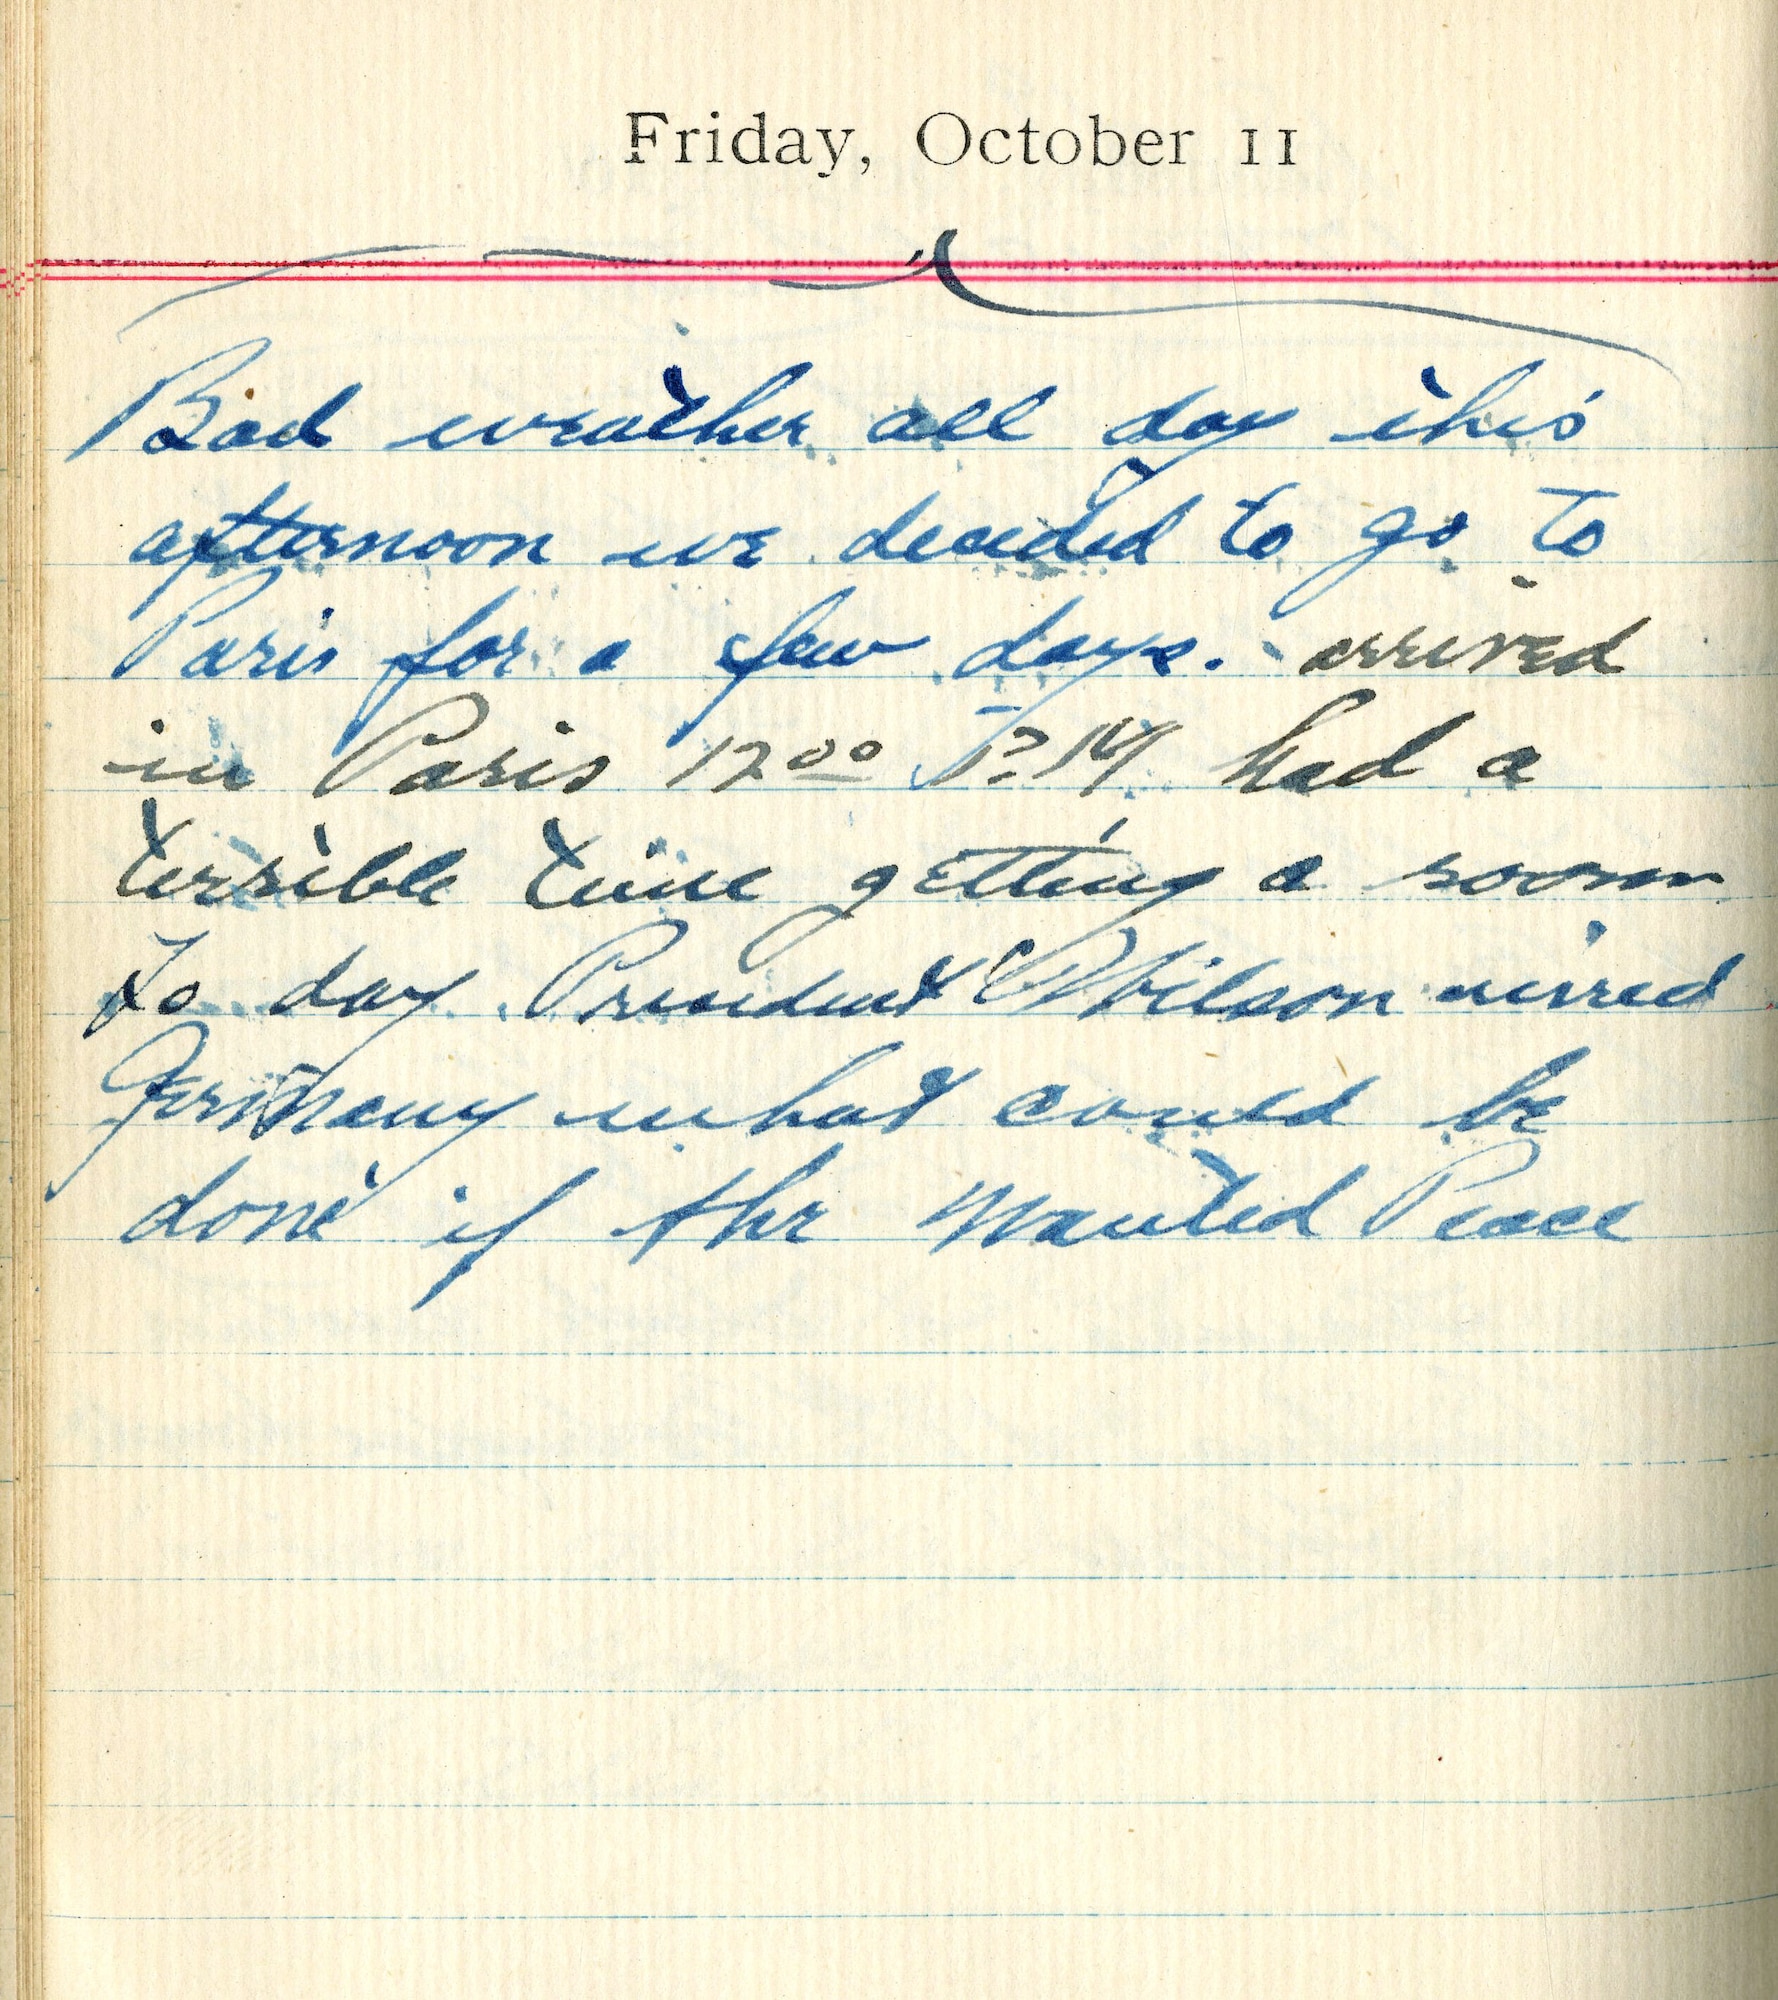 Friday, October 11
Bad weather all day this
afternoon we decided to go to
Paris for a few days. arrived
in Paris 12 00 P.M. had a
terrible time getting a room
To day President Wilson wired
Germany what could be
done if the wanted Peace